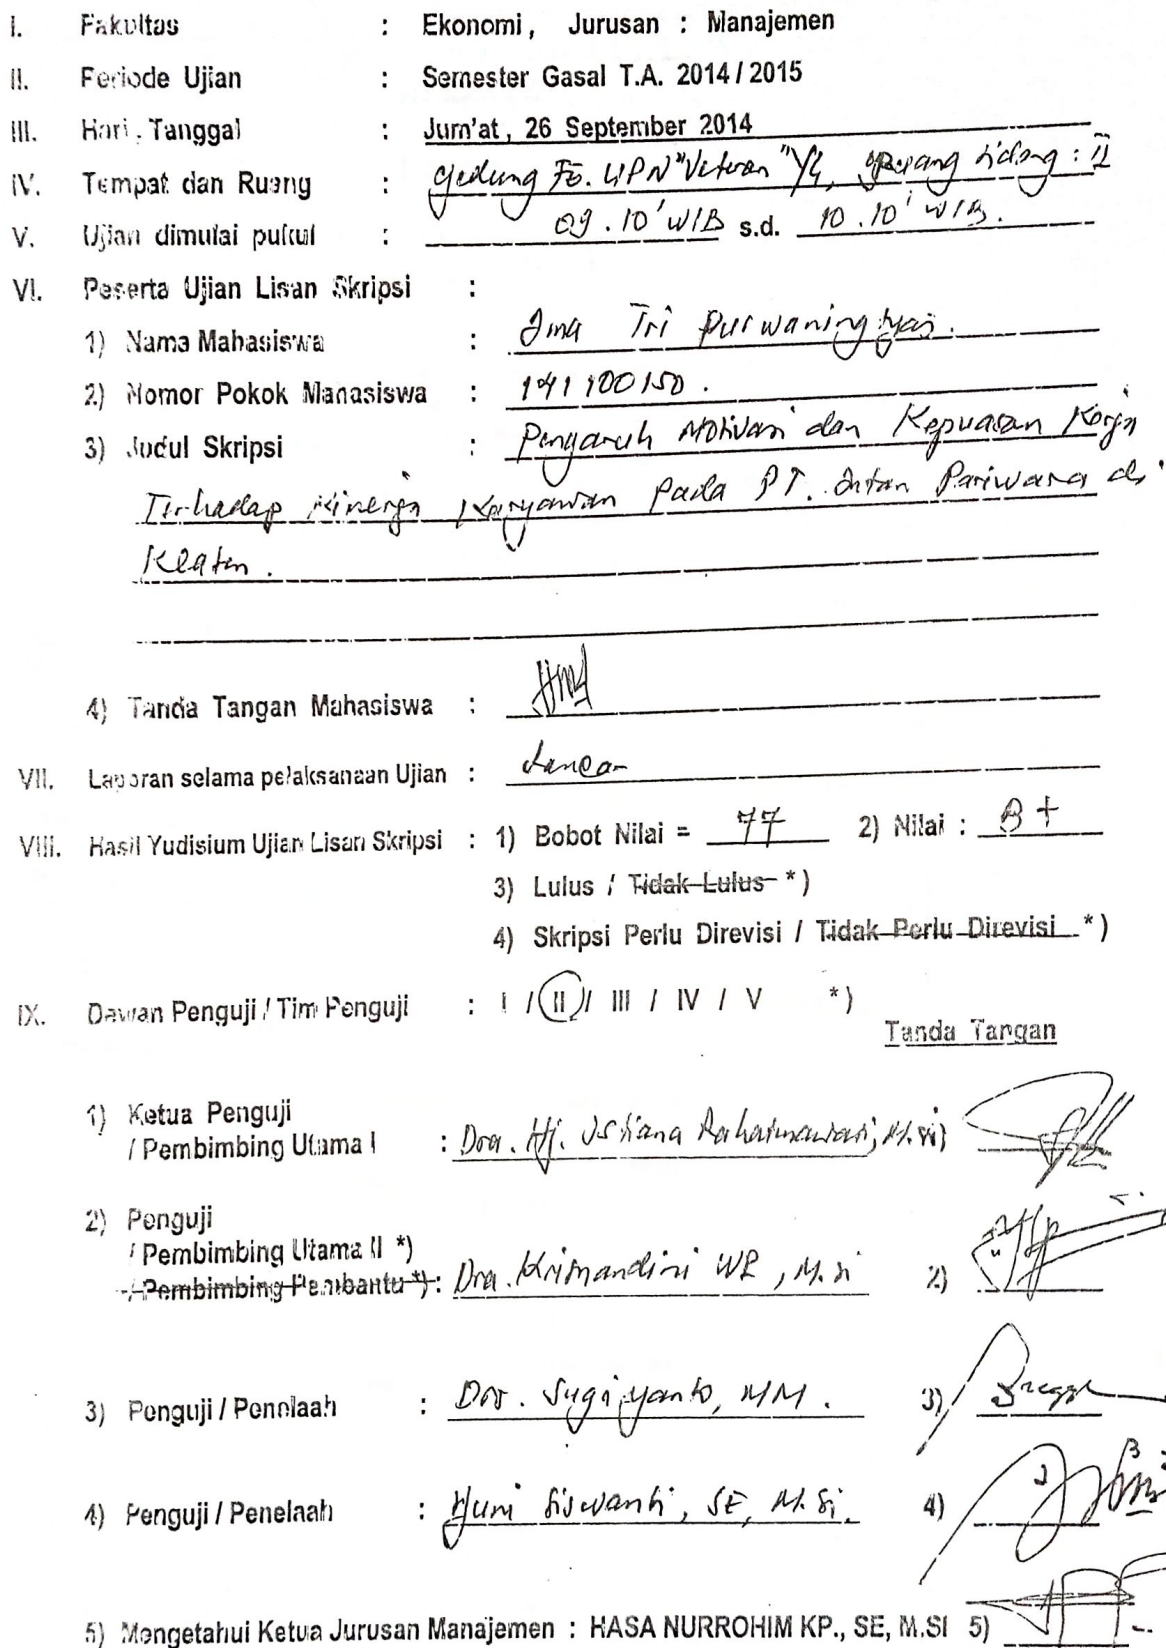 I. Fakultas : Ekonomi, Jurusan : Manajemen
II. Periode Ujian : Semester Gasal T.A. 2014 / 2015
III. Hari, Tanggal : Jum'at, 26 September 2014
IV. Tempat dan Ruang : Gedung FE. UPN "Veteran" YK, Ruang Sidang : II
V. Ujian dimulai pukul : 09.10' WIB s.d. 10.10' WIB.
VI. Peserta Ujian Lisan Skripsi :
1) Nama Mahasiswa : Ima Tri Purwaningtyas.
2) Nomor Pokok Mahasiswa : 141100150.
3) Judul Skripsi : Pengaruh Motivasi dan Kepuasan Kerja
Terhadap Kinerja Karyawan Pada PT. Intan Pariwara di
Klaten.
4) Tanda Tangan Mahasiswa :
VII. Laporan selama pelaksanaan Ujian : Lancar
VIII. Hasil Yudisium Ujian Lisan Skripsi : 1) Bobot Nilai = 77 2) Nilai : B+
3) Lulus / Tidak Lulus *)
4) Skripsi Perlu Direvisi / Tidak Perlu Direvisi *)
IX. Dewan Penguji / Tim Penguji : I / II / III / IV / V *)
Tanda Tangan
1) Ketua Penguji
/ Pembimbing Utama I : Dra. Hj. Istiana Rahatmawati, M.Si)
2) Penguji
/ Pembimbing Utama II *)
/ Pembimbing Pembantu *) : Dra. Krisnandini WP, M.Si 2)
3) Penguji / Penelaah : Drs. Sugiyanto, MM. 3)
4) Penguji / Penelaah : Yuni Siswanti, SE, M.Si. 4)
5) Mengetahui Ketua Jurusan Manajemen : HASA NURROHIM KP., SE, M.SI 5)